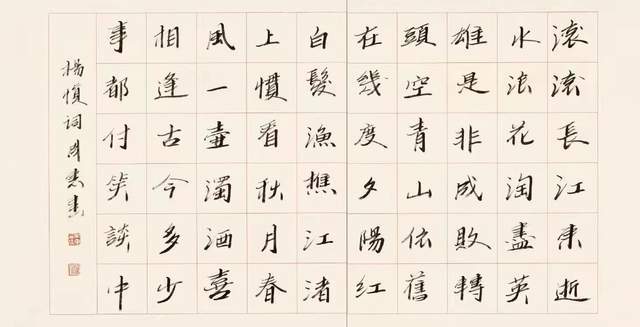 滚滚長江東逝
水浪花淘盡英
雄是非成敗轉
頭空青山依舊
在幾度夕陽紅
白髮漁樵江渚
上慣看秋月春
風一壺濁酒喜
相逢古今多少
事都付笑談中
楊慎词書